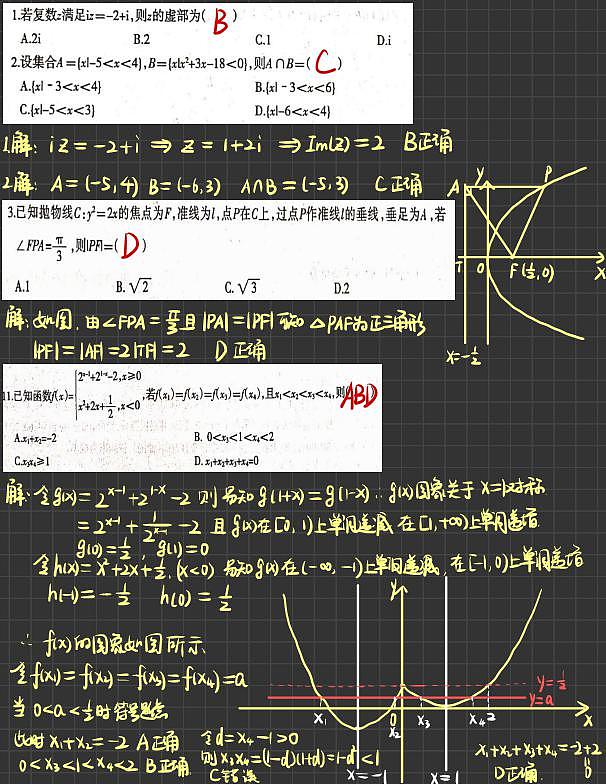 1.若复数z满足iz=-2+i,则z的虚部为( B )
A.2i B.2 C.1 D.i
2.设集合A={x|-5<x<4},B={x|x²+3x-18<0},则A∩B=( C )
A.{x|-3<x<4} B.{x|-3<x<6}
C.{x|-5<x<3} D.{x|-6<x<4}
1.解: iz=-2+i ⇒ z=1+2i ⇒Im(z)=2 B正确
2.解: A=(-5,4) B=(-6,3) A∩B=(-5,3) C正确
3.已知抛物线C:y²=2x的焦点为F,准线为l,点P在C上,过点P作准线l的垂线,垂足为A,若
∠FPA=π/3,则|PF|=( D )
A.1 B.√2 C.√3 D.2
A y P
T O F(½,0) X
x=-½
解: 如图,由∠FPA=π/3且|PA|=|PF|可知 △PAF为正三角形
|PF|=|AF|=2|TF|=2 D正确
11.已知函数f(x)={2ˣ⁻¹+2¹⁻ˣ-2,x≥0
x²+2x+1/2,x<0 ,若f(x₁)=f(x₂)=f(x₃)=f(x₄),且x₁<x₂<x₃<x₄,则( ABD
A.x₁+x₂=-2 B. 0<x₃<1<x₄<2
C.x₃x₄≥1 D.x₁+x₂+x₃+x₄=0
解: 令g(x)=2ˣ⁻¹+2¹⁻ˣ-2 则易知g(1+x)=g(1-x) ∴g(x)图象关于x=1对称
=2ˣ⁻¹+1/2ˣ⁻¹-2 且g(x)在[0,1)上单调递减,在[1,+∞)上单调递增
g(0)=½, g(1)=0
令h(x)=x²+2x+½,(x<0) 易知g(x)在(-∞,-1)上单调递减,在[-1,0)上单调递增
h(-1)=-½ h(0)=½
∴ f(x)的图象如图所示
令f(x₁)=f(x₂)=f(x₃)=f(x₄)=a
当0<a<½时符合题意
此时x₁+x₂=-2 A正确
0<x₃<1<x₄<2 B正确
令d=x₄-1>0
则x₃x₄=(1-d)(1+d)=1-d²<1
C错误
y
y=½
y=a
x₁ 0 x₂ x₃ x₄ 2 x
x=-1 x=1
x₁+x₂+x₃+x₄=-2+2
D正确